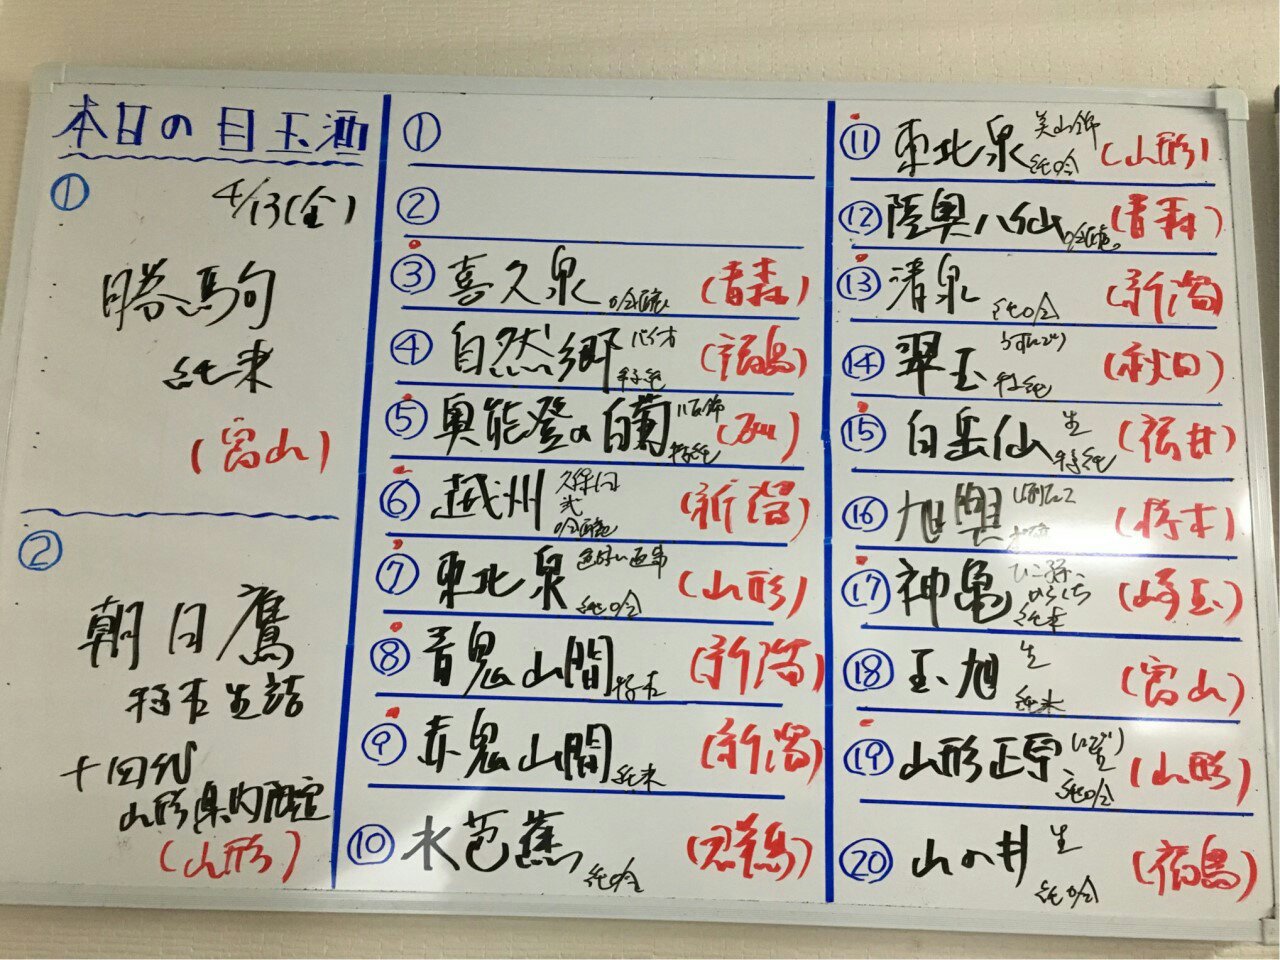 本日の目玉酒
①
4/13(金)
勝駒
純米
(富山)
②
朝日鷹
特本生詰
十四代
山形県内限定
(山形)
①
②
③ 喜久泉 吟醸 (青森)
④ 自然郷 バイオ 特純 (福島)
⑤ 奥能登の白菊 八反錦 特純 (石川)
⑥ 越州 久保田 弐 吟醸 (新潟)
⑦ 東北泉 純吟 (山形)
⑧ 青鬼山間 特本 (新潟)
⑨ 赤鬼山間 純米 (新潟)
⑩ 水芭蕉 純吟 (群馬)
⑪ 東北泉 美山錦 純吟 (山形)
⑫ 陸奥八仙 吟醸 (青森)
⑬ 清泉 純吟 (新潟)
⑭ 翠玉 うすにごり 特純 (秋田)
⑮ 白岳仙 生 特純 (福井)
⑯ 旭興 (栃木)
⑰ 神亀 ひこ孫 純米 (埼玉)
⑱ 玉旭 生 純米 (富山)
⑲ 山形正宗 純吟 (山形)
⑳ 山の井 生 純吟 (福島)